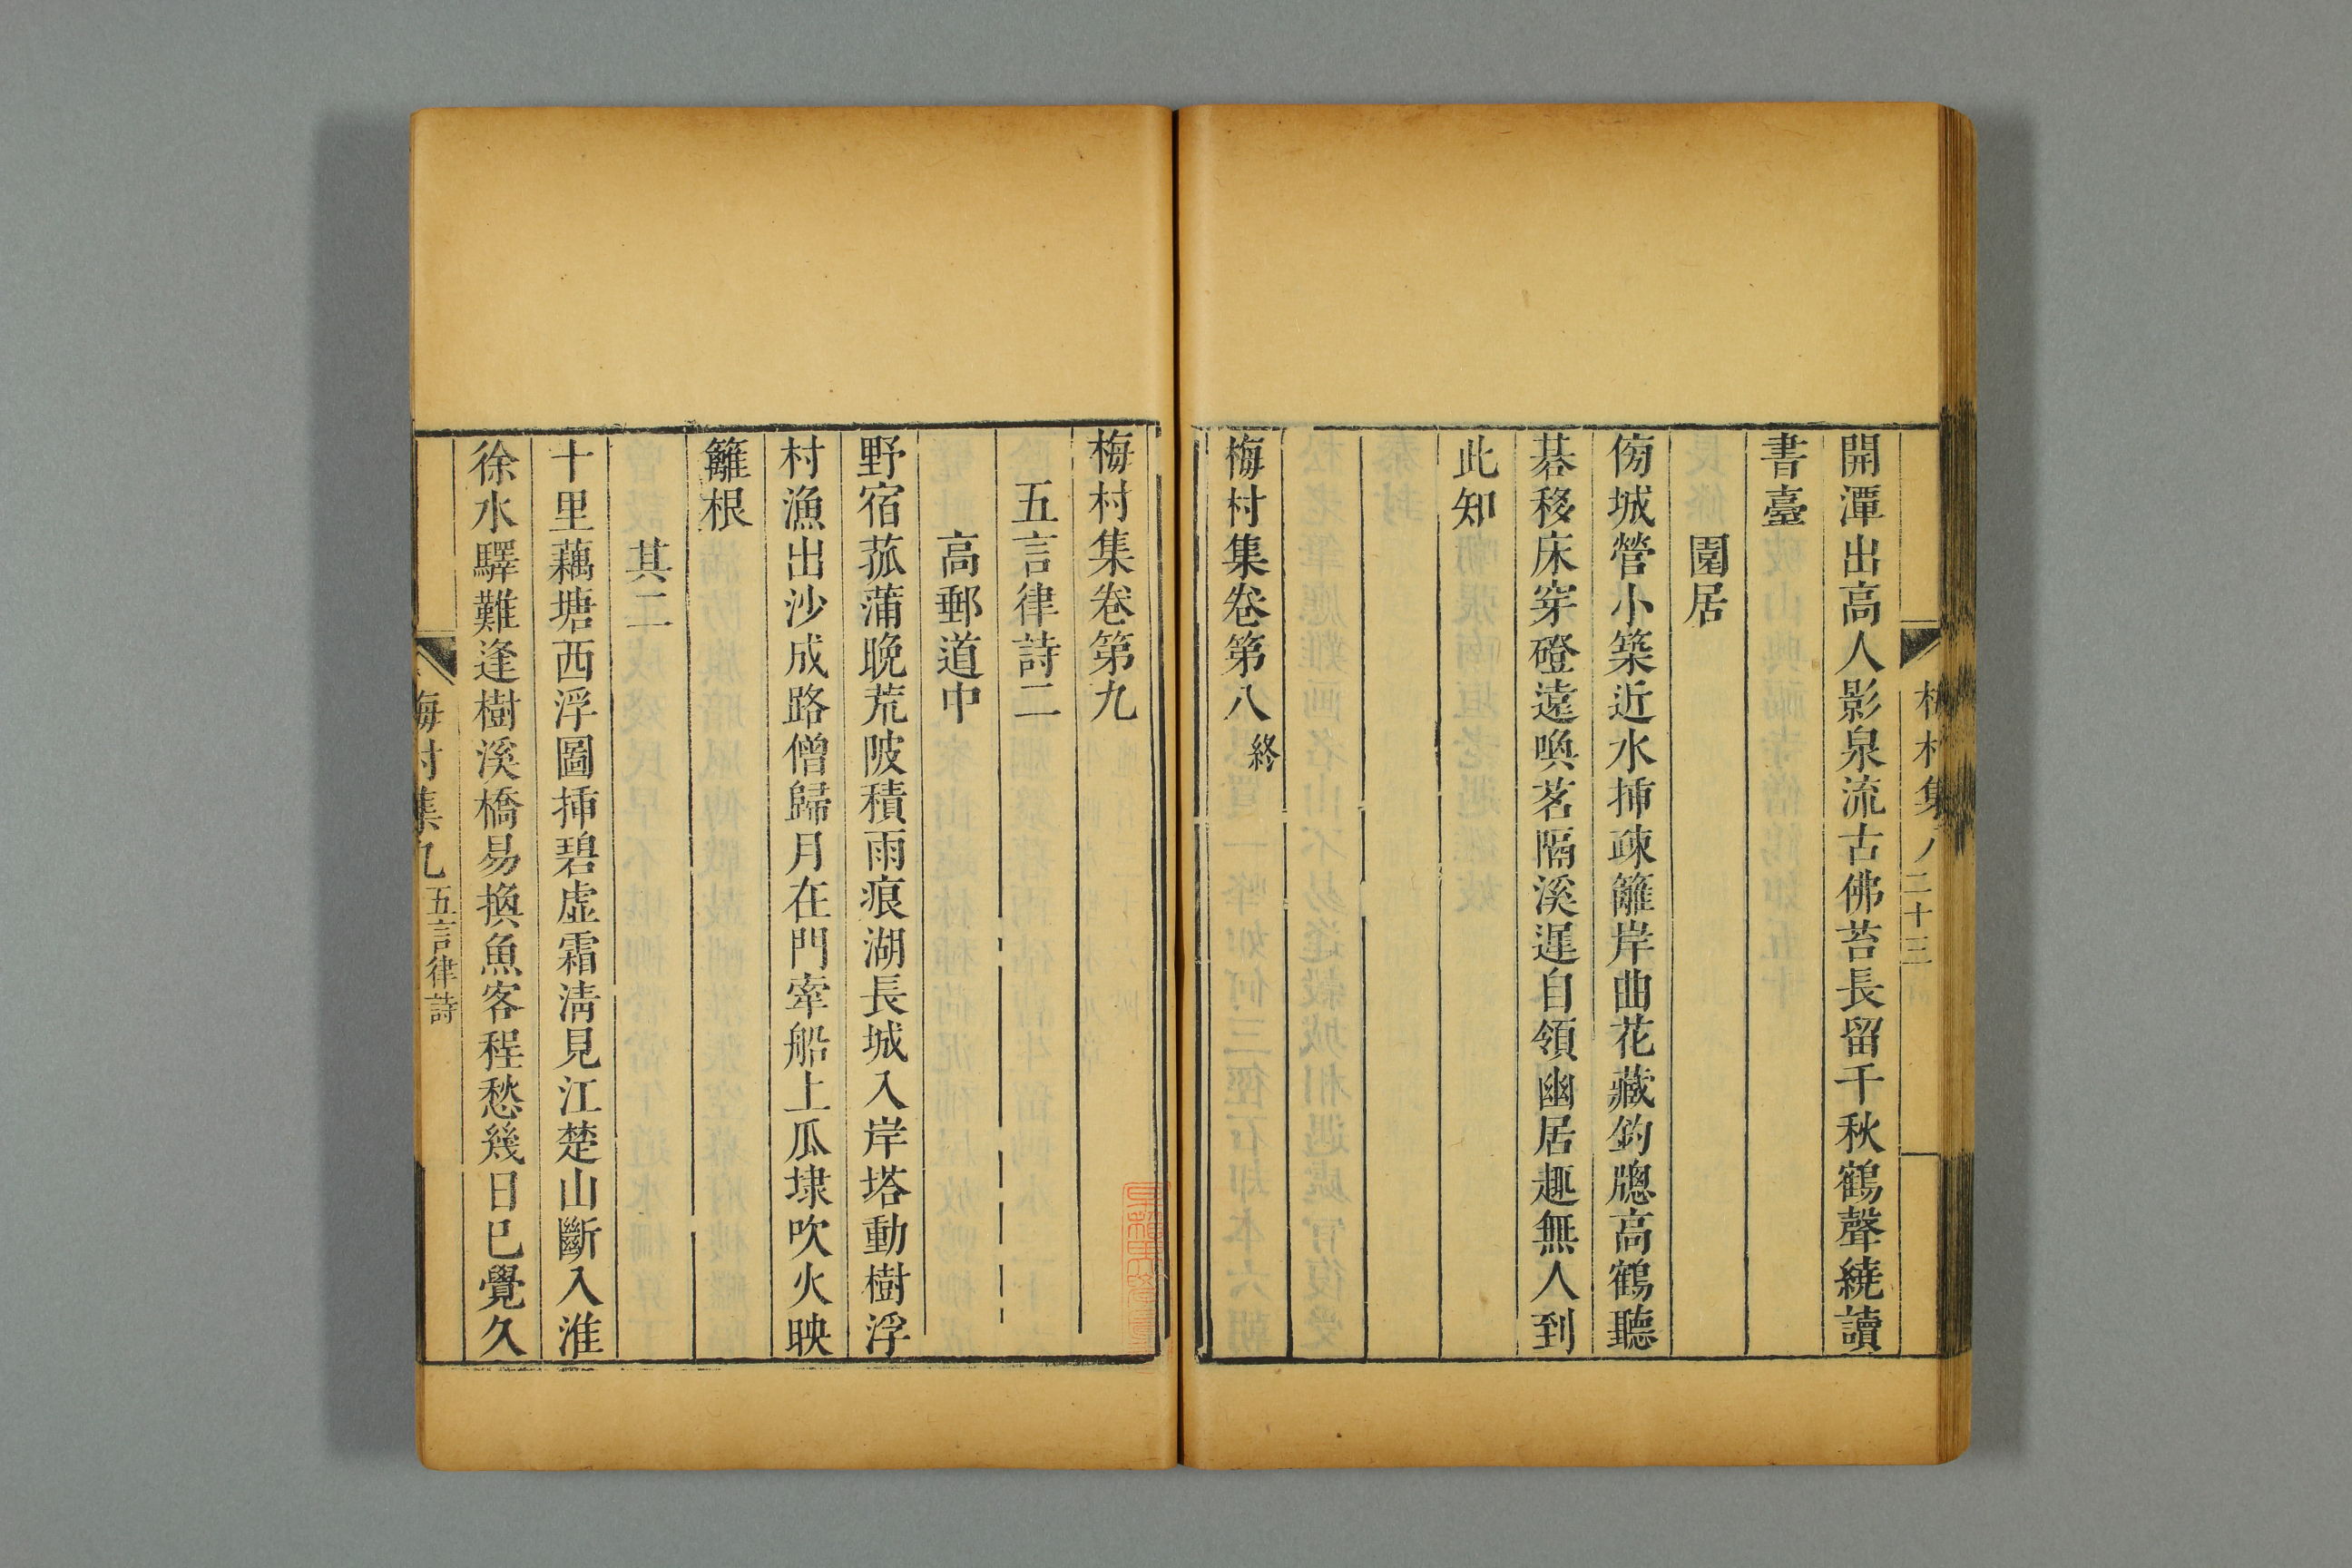 梅村集八 二十三
開潭出高人影泉流古佛苔長留千秋鶴聲繞讀
書臺
園居
傍城營小築近水揷疎籬岸曲花藏釣牕高鶴聽
碁移床穿磴遠喚茗隔溪遲自領幽居趣無人到
此知
梅村集卷第八 終
梅村集卷第九
五言律詩二
高郵道中
野宿菰蒲晚荒陂積雨痕湖長城入岸塔動樹浮
村漁出沙成路僧歸月在門牽船上瓜埭吹火映
籬根
其二
十里藕塘西浮圖揷碧虛霜淸見江楚山斷入淮
徐水驛難逢樹溪橋易換魚客程愁幾日巳覺久
梅村集九 五言律詩